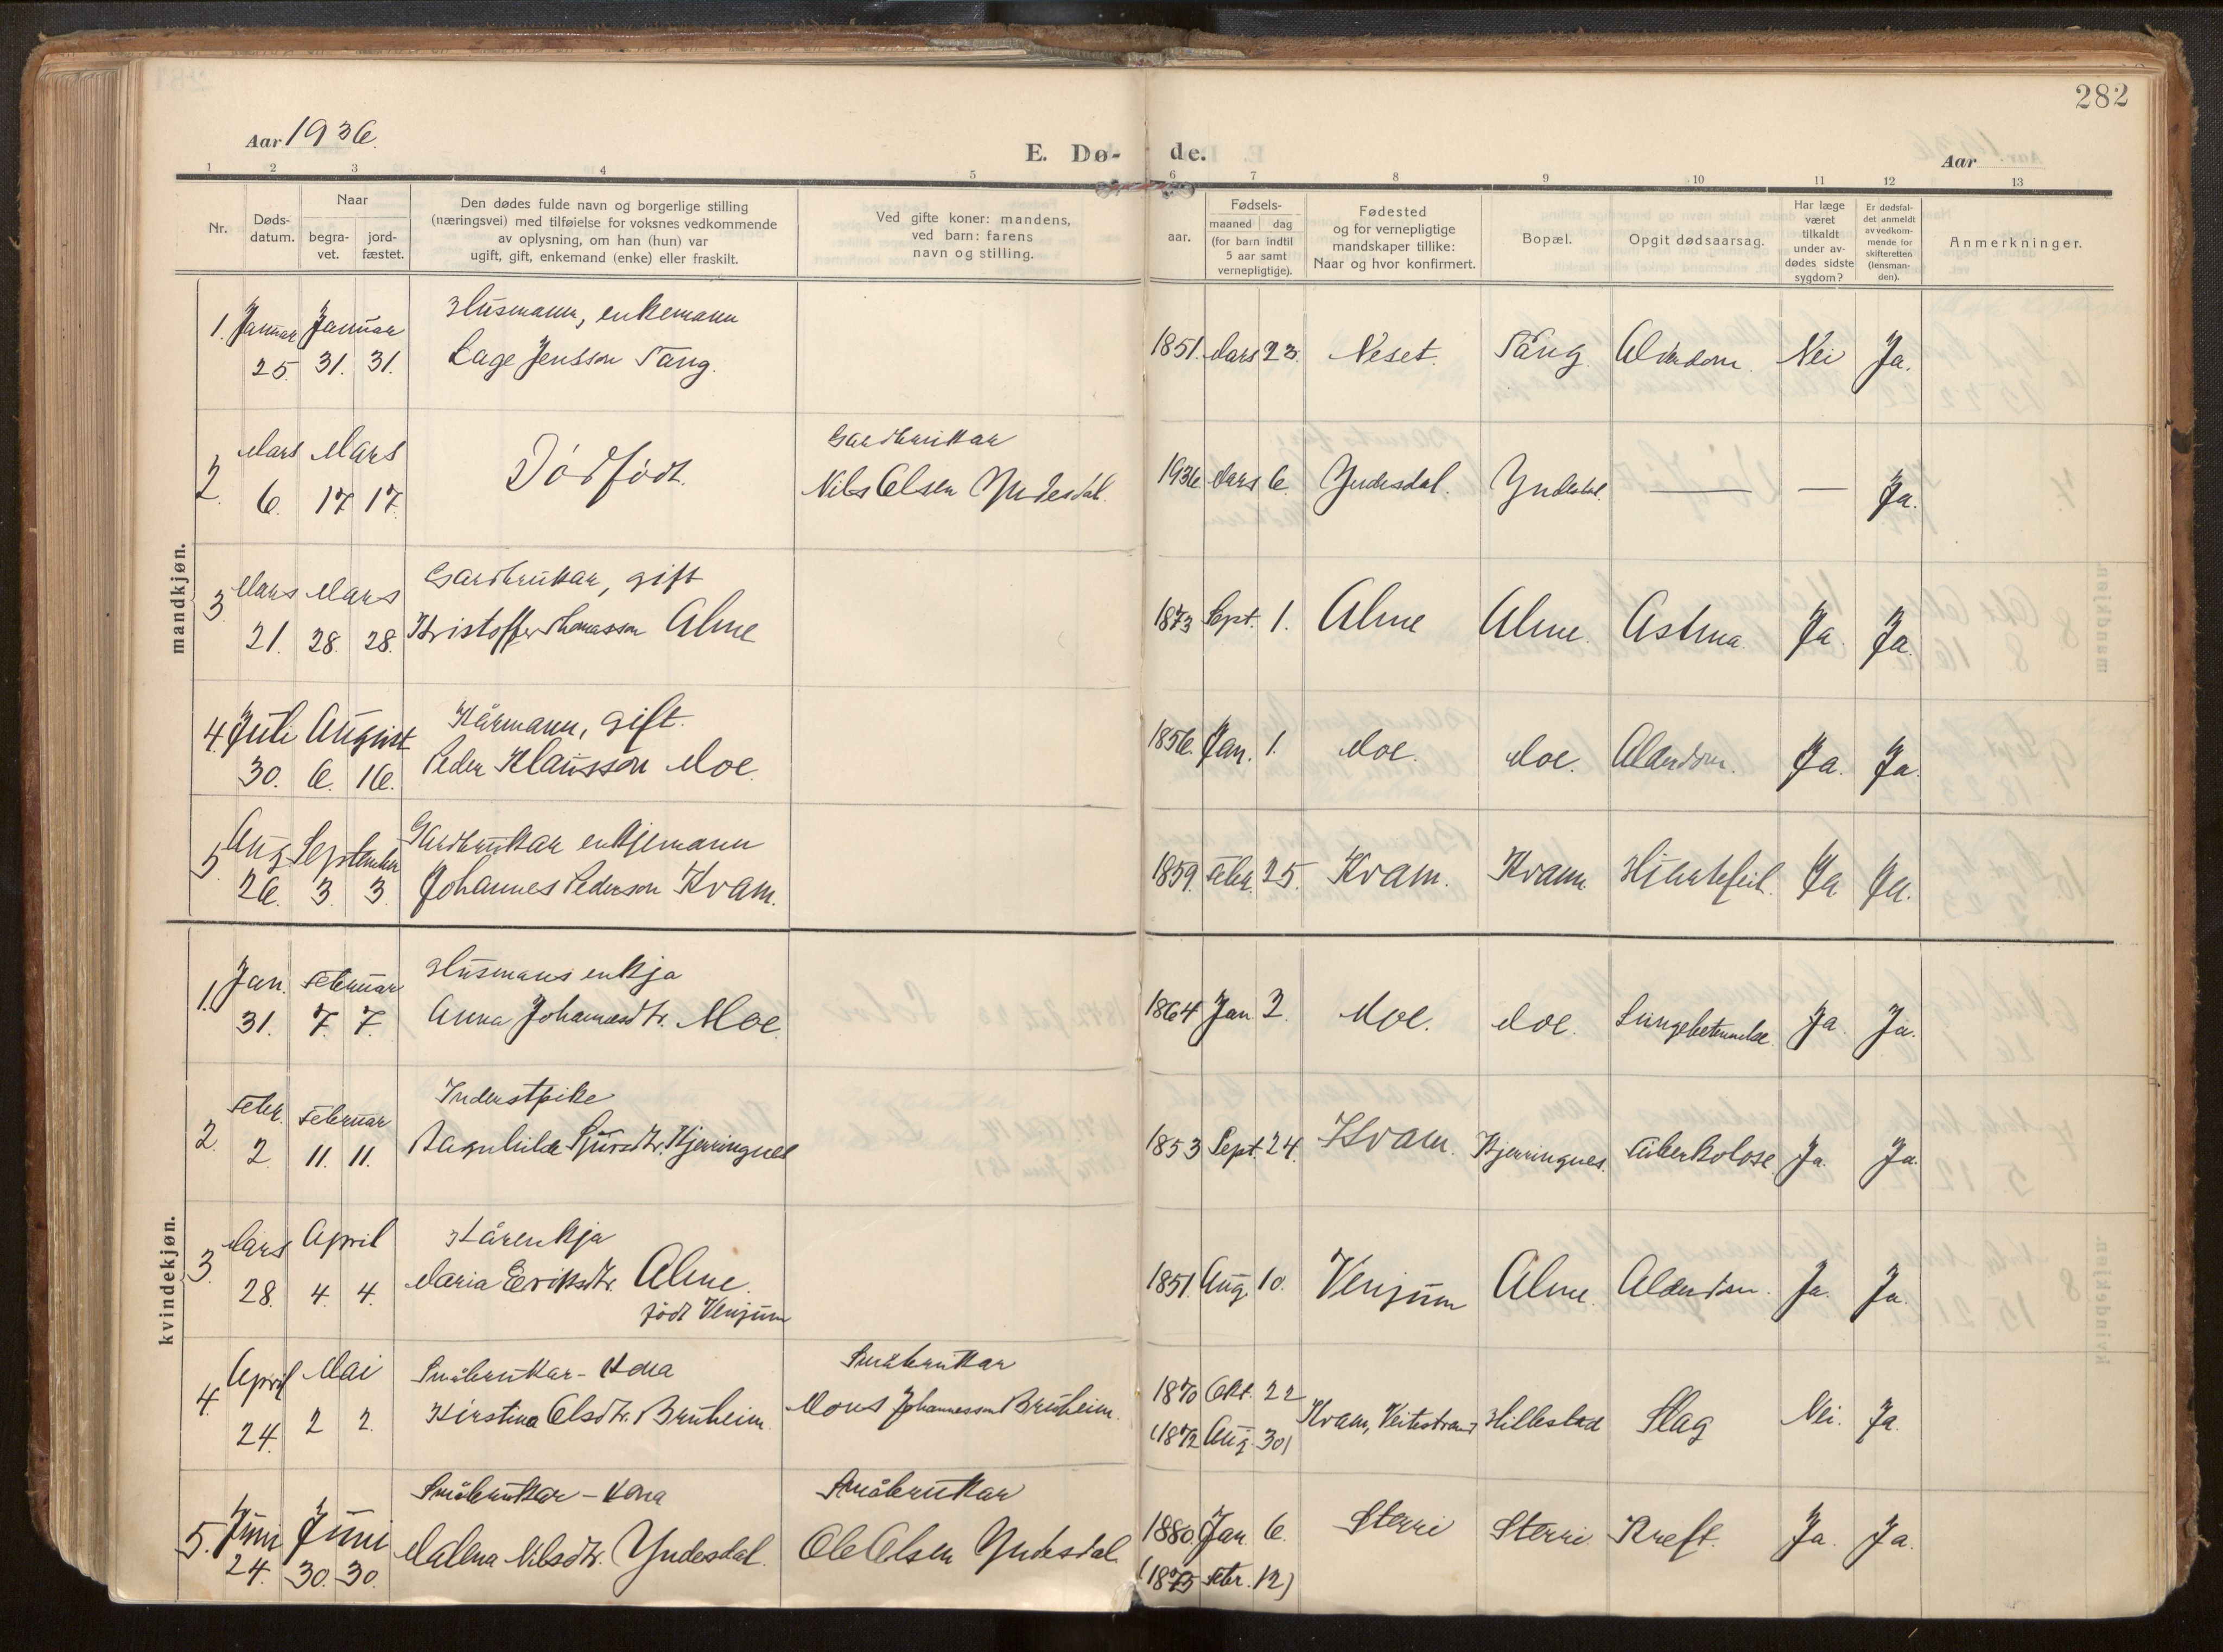 282
Aar 1936.
E. Dø-de.
Aar
1 2 3 4 5 6 7 8 9 10 11 12 13
Nr.
Døds-
datum.
Naar
begra-
vet.
jord-
fæstet.
Den dødes fulde navn og borgerlige stilling
(næringsvei) med tilføielse for voksnes vedkommende
av oplysning, om han (hun) var
ugift, gift, enkemand (enke) eller fraskilt.
Ved gifte koner: mandens,
ved barn: farens
navn og stilling.
Fødsels-
aar.
maaned dag
(for barn indtil
5 aar samt
vernepligtige).
Fødested
og for vernepligtige
mandskaper tillike:
Naar og hvor konfirmert.
Bopæl.
Opgit dødsaarsag.
Har læge
været
tilkaldt
under av-
dødes sidste
sygdom?
Er dødsfal-
det anmeldt
av vedkom-
mende for
skifteretten
(lensman-
den).
Anmerkninger.
mandkjøn.
1. Januar Januar Husmann, enkemann
25. 31. 31. Lage Jensson Tang. 1851. Mars 23. Neset. Tang. Alderdom. Nei Ja.
2. Mars Mars Gardbrukar
6. 17 17. Dødfødt. Nils Olsen Yndesdal. 1936 Mars 6. Yndesdal. Yndesdal. — — Ja.
3 Mars Mars Gardbrukar, gift
21. 28. 28. Kristoffer Thomasson Alme 1873 Sept. 1. Alme Alme. Astma. Ja. Ja.
4. Juli August Kårmann, gift.
30. 6. 16. Peder Klausson Moe. 1856. Jan. 1. Moe. Moe. Alderdom. Ja. Ja.
5 Aug September Gardbrukar enkjemann
26. 3. 3. Johannes Pederson Kvam. 1859. Febr. 25. Kvam. Kvam. Hjertefeil. Ja Ja.
kvindekjøn.
1. Jan. Februar Husmans enkja
31. 7. 7. Anna Johannesdtr. Moe. 1864 Jan. 2. Moe. Moe. Lungebetennelse. Ja. Ja.
2. Febr. Februar Inderstpike
2. 11. 11. Ragnhilda Sjursdtr. Kjerringnes 1853 Sept. 24. Kvam. Kjerringnes. Tuberkolose. Ja. Ja.
3. Mars April Kårenkja
28. 4. 4. Maria Eeriksdtr. Alme. 1851. Aug. 10. Venjum Alme. Alderdom. Ja. Ja.
født Venjum
4. April Mai Småbrukar-kona Småbrukar
24. 2 2. Kirstina Olsdtr. Bruheim. Mons Johannesson Bruheim. 1870 Okt. 22 Kvam, Veitestrand Hillestad Slag Nei. Ja.
(1872 Aug. 30)
5. Juni Juni Småbrukar-kona Småbrukar
24. 30. 30. Malena Nilsdtr. Yndesdal. Ole Olsen Yndesdal. 1880. Jan. 6. Sterri Sterri. Kreft. Ja. Ja.
(1875 Febr. 12)